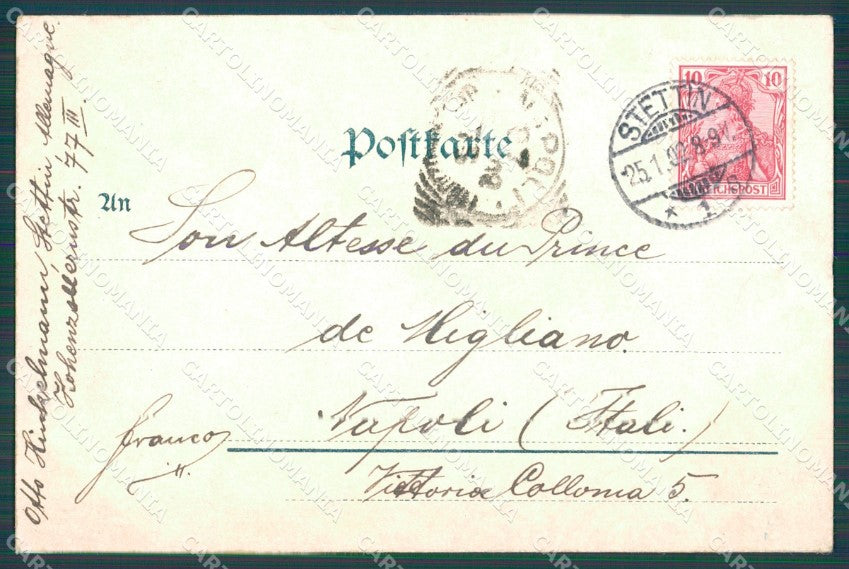 Postkarte
An
Son Altesse du Prince
de Migliano.
Napoli (Itali.)
Vittoria Collona 5.
franco
Otto Hintzelmann Stettin Allemagne.
Hohenzollernstr. 77 III.
10 10
REICHSPOST
STETTIN
25.1.02.8-9V.
* 1
NAPOLI
CARTOLINOMANIA